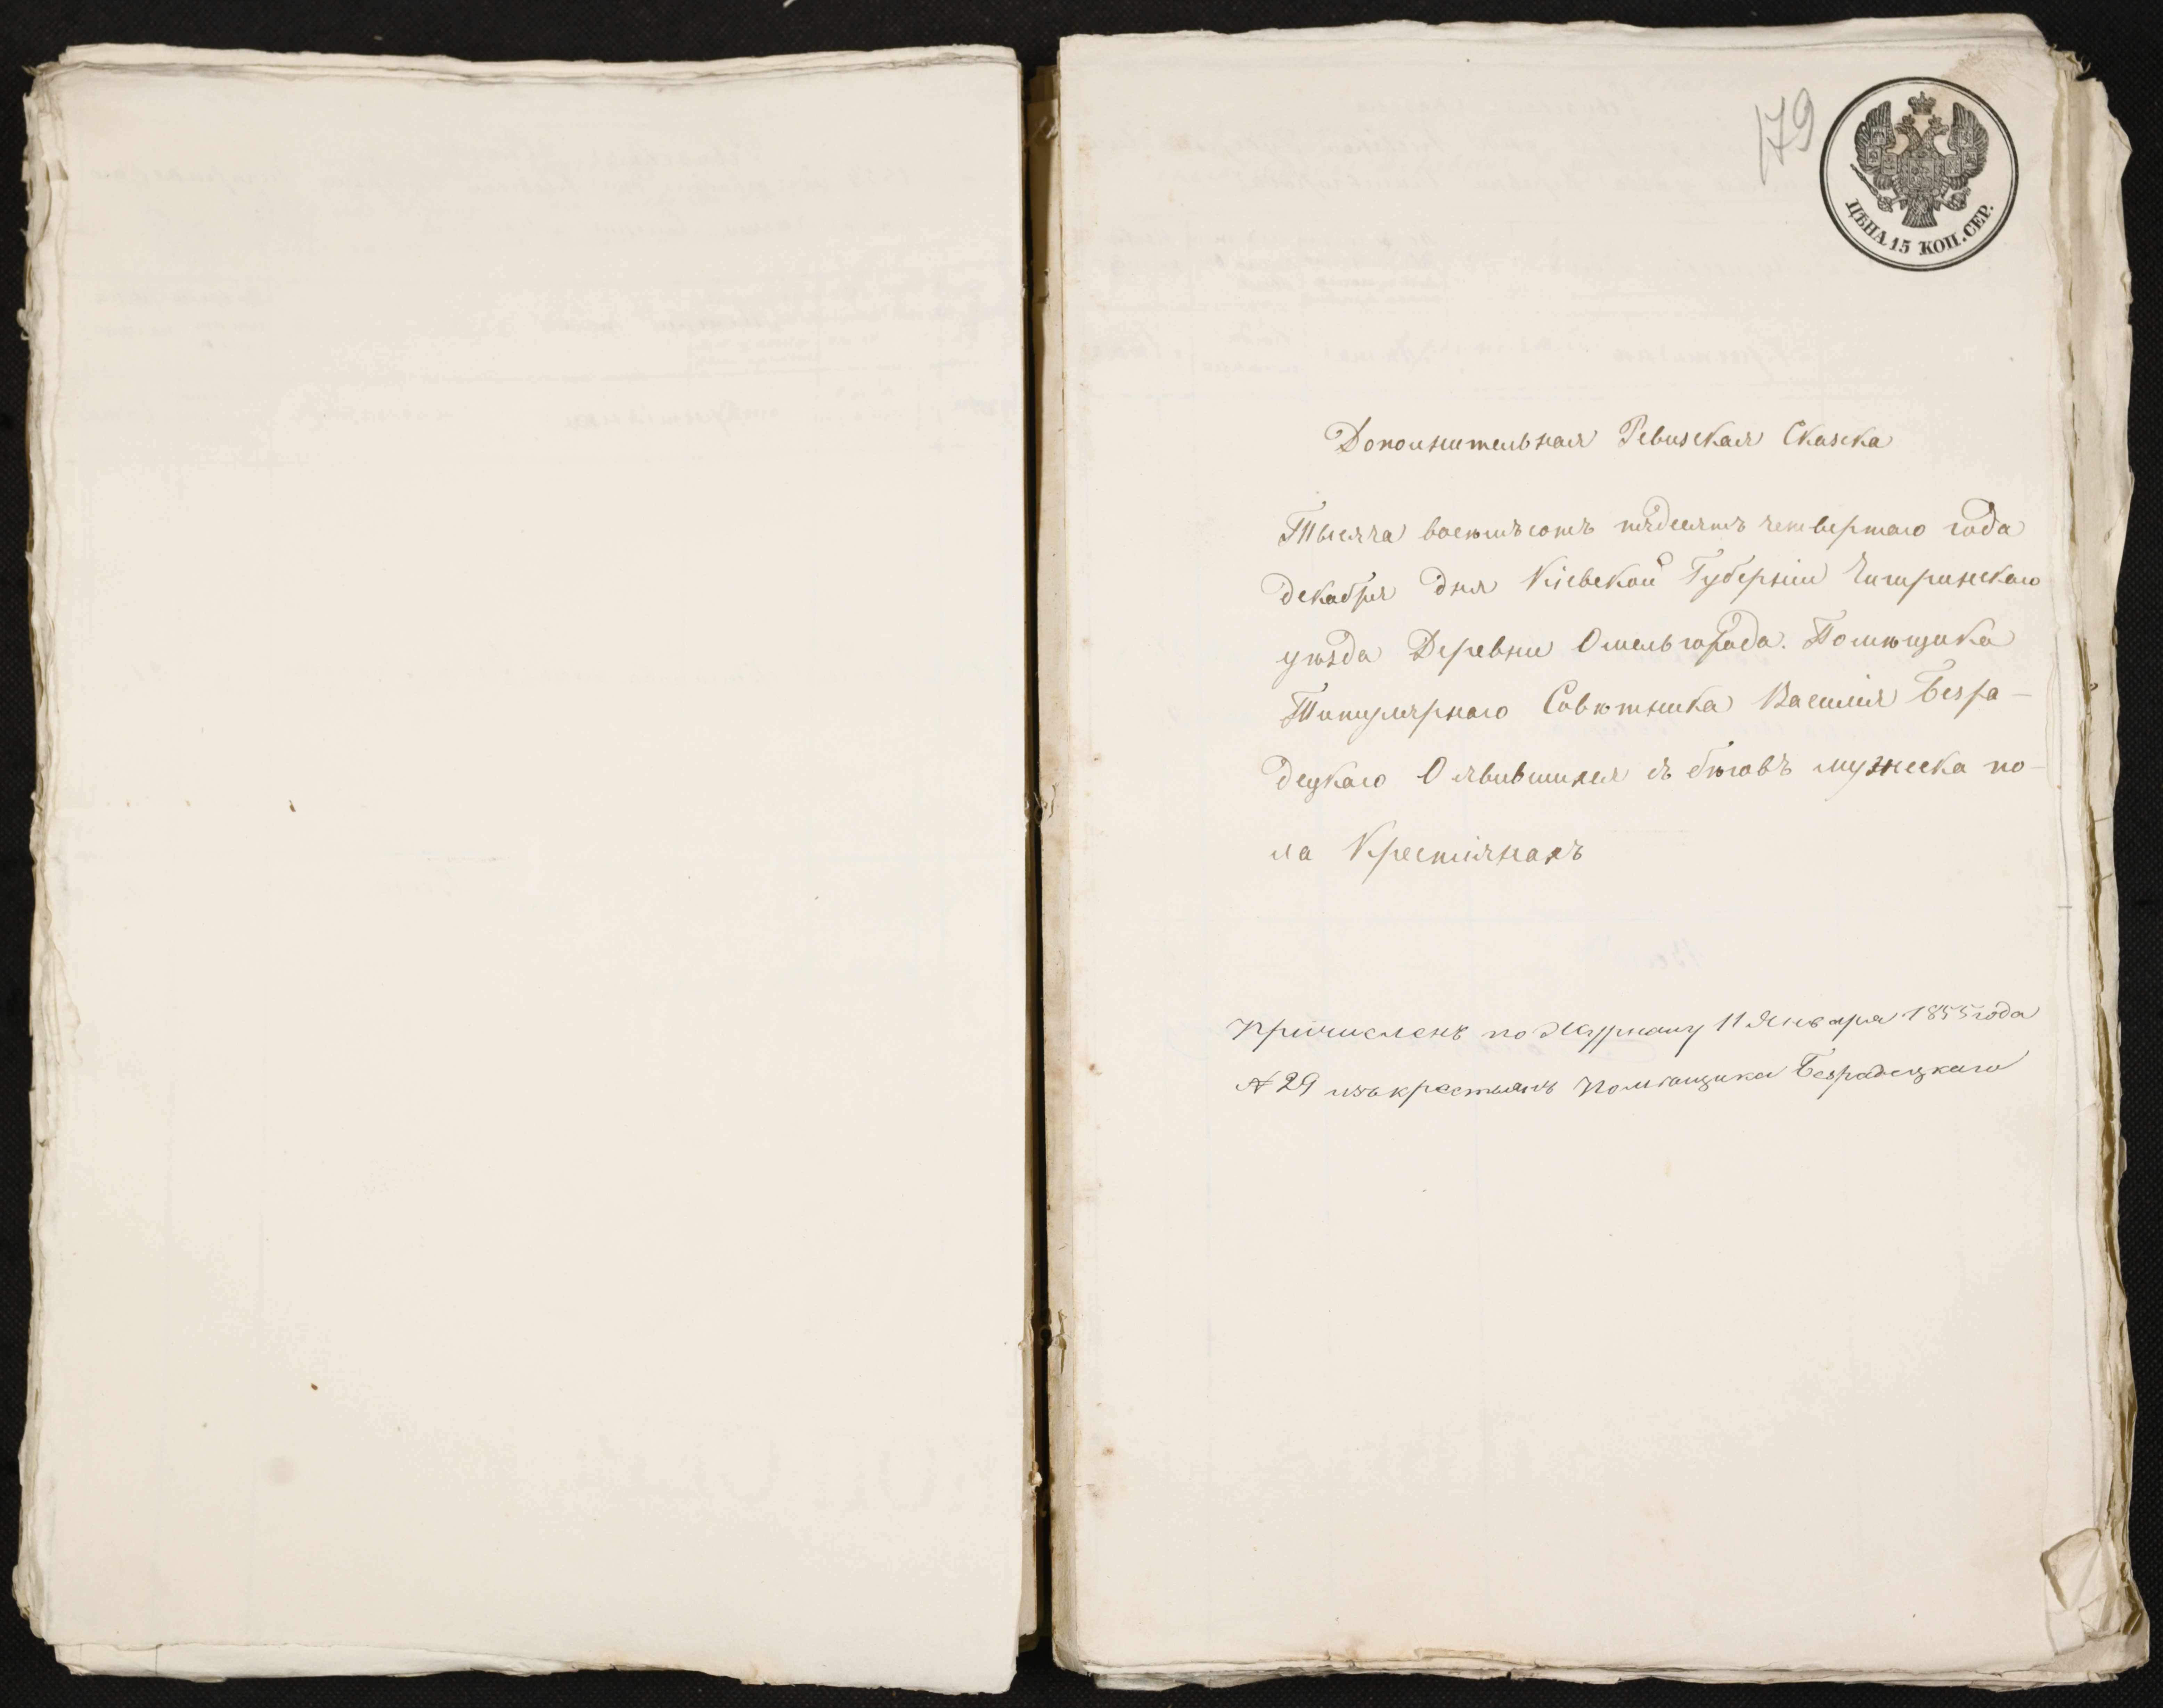 179
ЦѢНА 15 КОП. СЕР.
Дополнительная Ревизская Сказка
Тысяча восемьсотъ пядесятъ четвертаго года
декабря дня Кіевской Губерніи Чигиринскаго
уѣзда Деревни Омельгорода. Помѣщика
Титулярнаго Совѣтника Василія Безра-
децкаго О явившихся съ бѣговъ мужеска по-
ла Крестіянахъ
Причисленъ по Журналу 11 Января 1855 года
№ 29 изъ крестьянъ Помѣщика Безрадецкаго